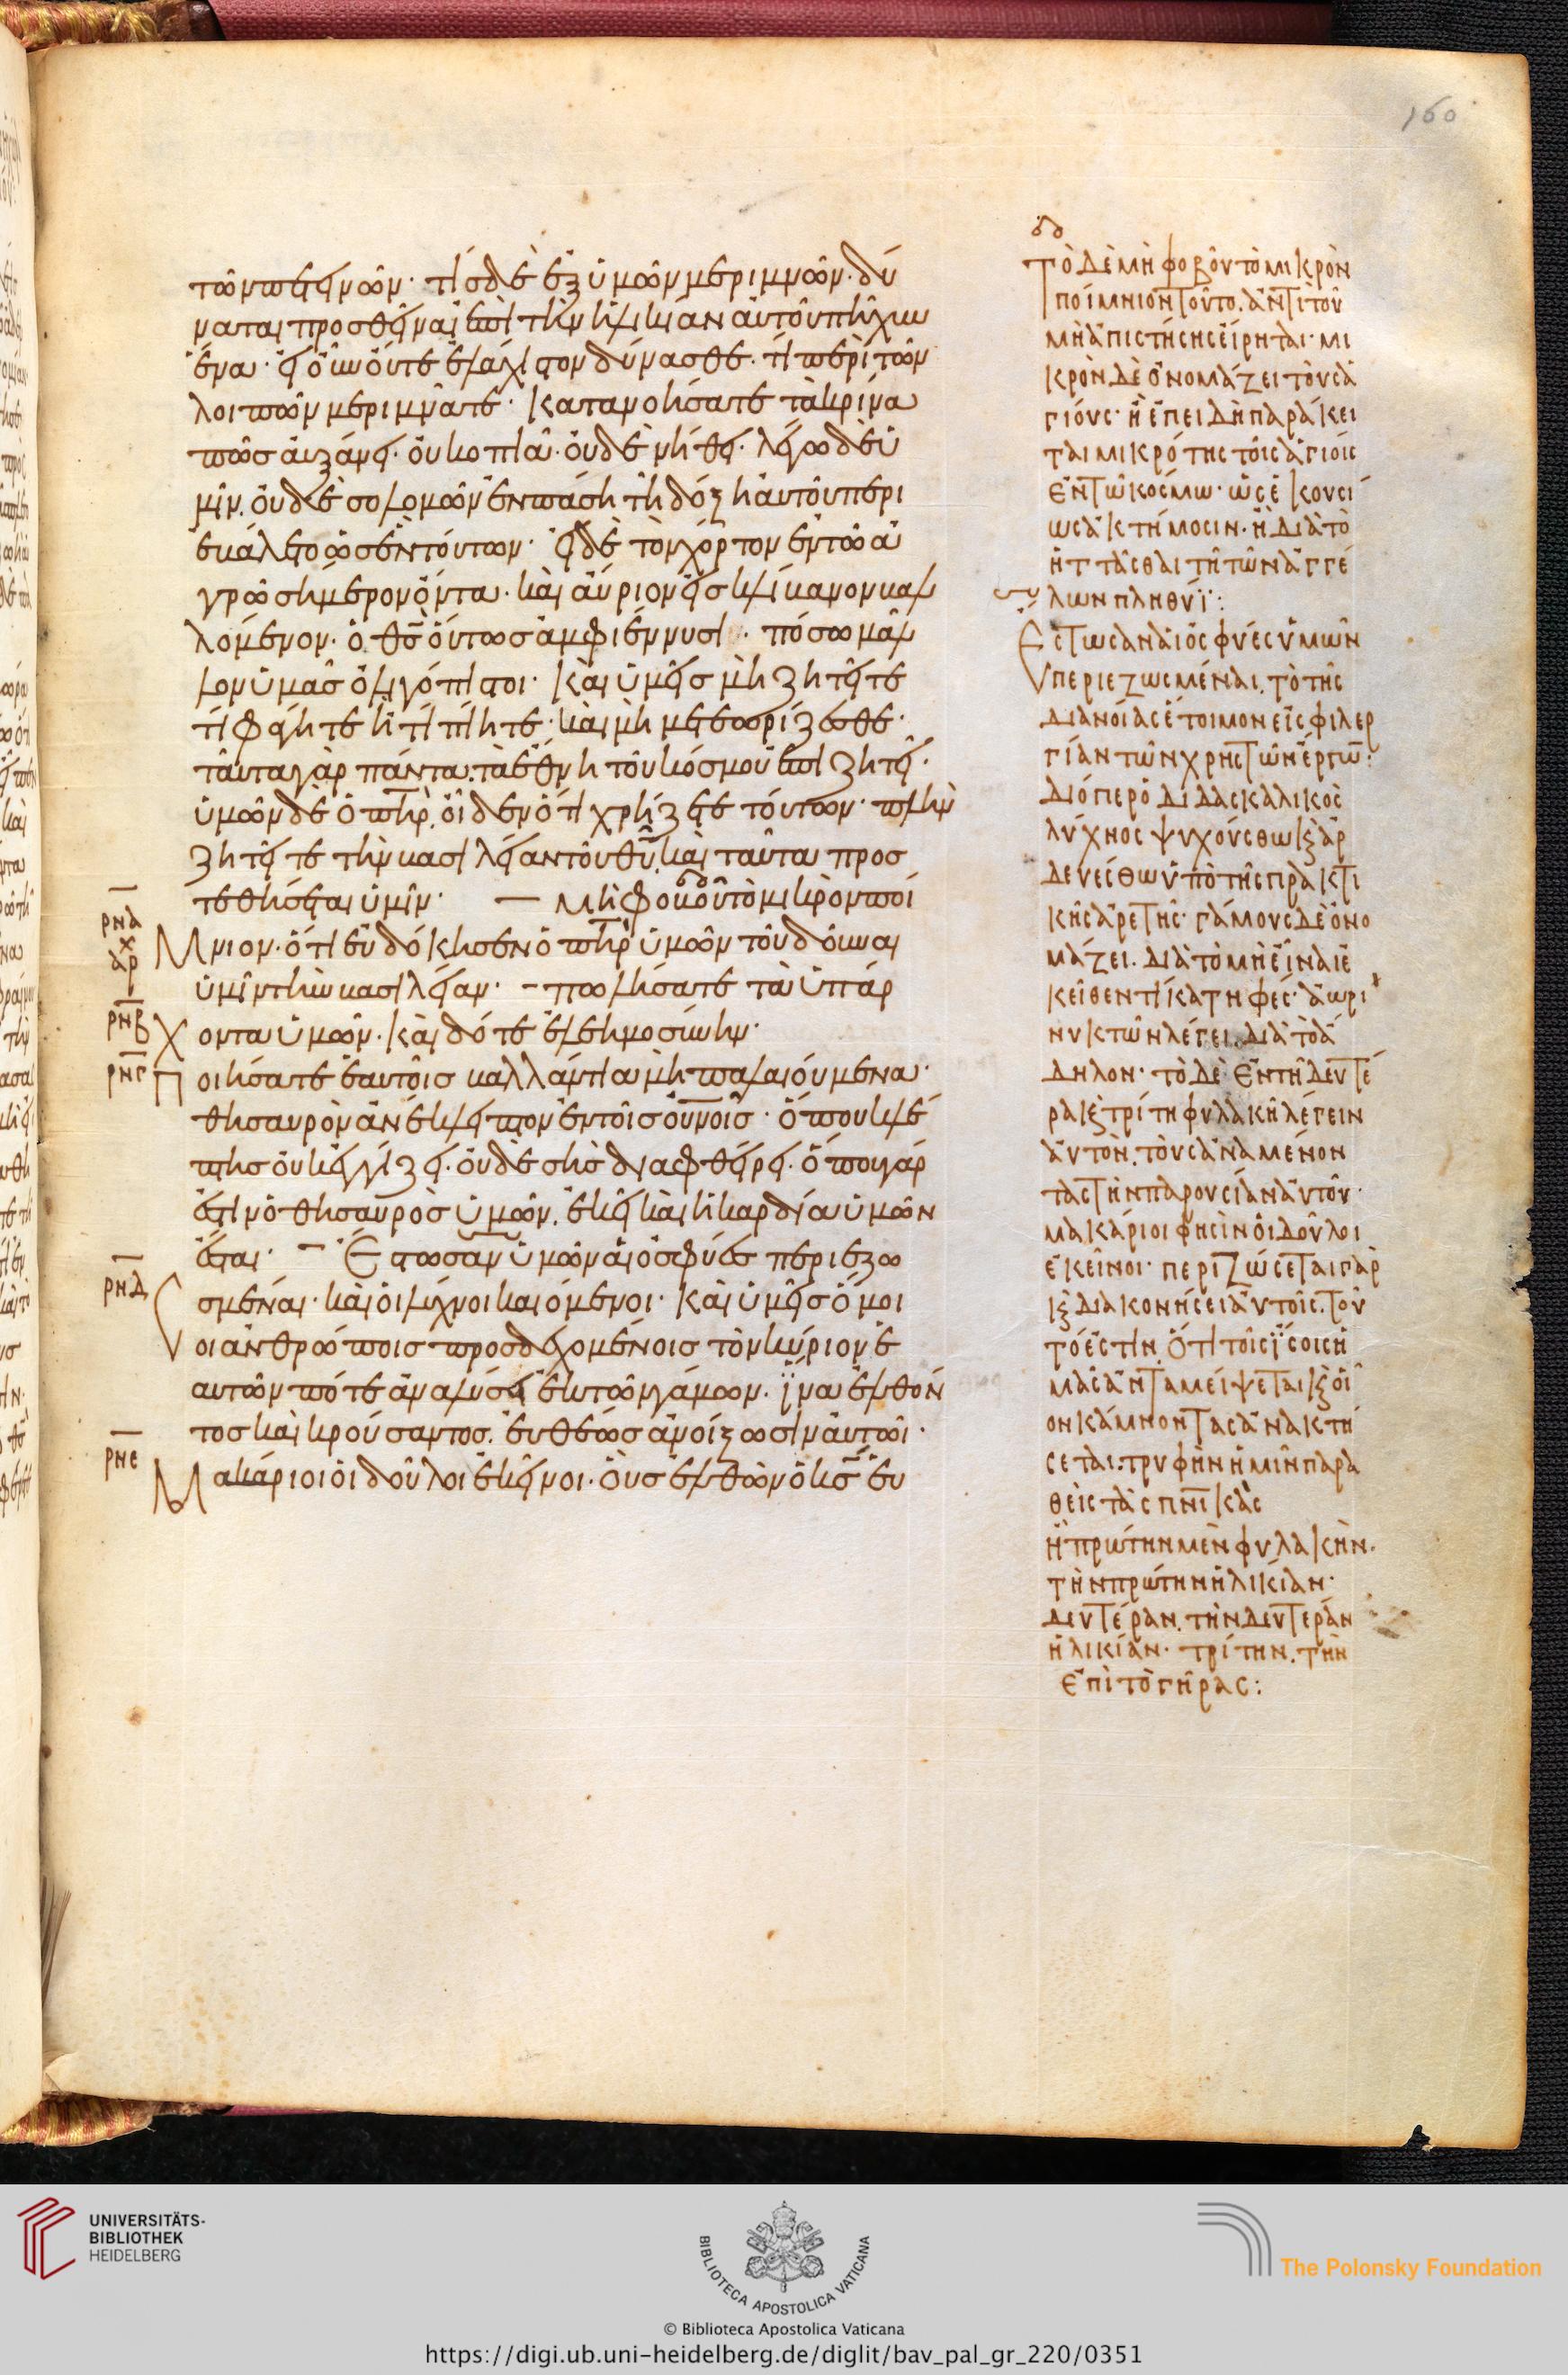 160
τῶν πετεινῶν· τίς δὲ ἐξ ὑμῶν μεριμνῶν· δύ
ναται προσθεῖναι ἐπὶ τὴν ἡλικίαν αὐτοῦ πῆχυν
ἕνα· εἰ οὖν οὔτε ἐλάχιστον δύνασθε· τί περὶ τῶν
λοιπῶν μεριμνᾶτε· κατανοήσατε τὰ κρίνα
πῶς αὐξάνει· οὐ κοπιᾶ· οὐδὲ νήθει· λέγω δὲ ὑ
μῖν. οὐδὲ σολομῶν ἐν πάση τῆ δόξη αὐτοῦ περι
εβάλετο ὡς ἓν τούτων· εἰ δὲ τὸν χόρτον ἐν τῶ ἀ
γρῶ σήμερον ὄντα· καὶ αὔριον εἰς κλίβανον βαλ
λόμενον· ὁ θς οὕτως ἀμφιέννυσι· πόσω μᾶλ
λον ὑμᾶς ὀλιγόπιστοι· καὶ ὑμεῖς μὴ ζητεῖτε
τί φάγητε ἢ τί πίητε· καὶ μὴ μετεωρίζεσθε·
ταῦτα γὰρ πάντα. τὰ ἔθνη τοῦ κόσμου ἐπιζητεῖ·
ὑμῶν δὲ ὁ πηρ. οἶδεν ὅτι χρήζετε τούτων· πλὴν
ζητεῖτε τὴν βασιλείαν τοῦ θυ. καὶ ταῦτα προσ
τεθήσεται ὑμῖν· — Μὴ φοβοῦ τὸ μικρὸν ποί
ρνα
χρ
Μνιον· ὅτι εὐδόκησεν ὁ πηρ ὑμῶν τοῦ δοῦναι
ὑμῖν τὴν βασιλείαν· – πωλήσατε τὰ ὑπάρ
ρνβ
Χοντα ὑμῶν· καὶ δότε ἐλεημοσύνην·
ρνγ
Ποιήσατε ἑαυτοῖς βαλλάντια μὴ παλαιούμενα·
θησαυρὸν ἀνέκλειπτον ἐν τοῖς οὐνοῖς· ὅπου κλέ
πτης οὐκ ἐγγίζει· οὐδὲ σὴς διαφθείρει· ὅπου γάρ
ἐστιν ὁ θησαυρὸς ὑμῶν. ἐκεῖ καὶ ἡ καρδία ὑμῶν
ἔσται· – Ἔστωσαν ὑμῶν αἱ ὀσφύες περιεζω
ρνδ
σμέναι· καὶ οἱ λύχνοι καιόμενοι· καὶ ὑμεῖς ὅμοι
οι ἀνθρώποις προσδεχομένοις τὸν κύριον ἑ
αυτῶν πότε ἀναλύσει ἐκ τῶν γάμων. ἵνα ἐλθόν
τος καὶ κρούσαντος. εὐθέως ἀνοίξωσιν αὐτῶι·
ρνε
Μακάριοι οἱ δοῦλοι ἐκεῖνοι· οὓς ἐλθὼν ὁ κς εὑ
Τὸ δὲ μὴ φοβοῦ τὸ μικρὸν
ποίμνιον τοῦτο. ἀντὶ τοῦ
μὴ ἀπιστήσης εἴρηται· μι
κρὸν δὲ ὀνομάζει τοὺς ἁ
γίους· ἢ ἐπειδὴ παράκει
ται μικρότης τοῖς ἁγίοις
ἐν τῶ κόσμω· ὡς ἑκουσί
ως ἀκτήμοσιν· ἢ διὰ τὸ
ἡττᾶσθαι τῆ τῶν ἀγγέ
λων πληθύϊ:
Ἔστωσαν αἱ ὀσφύες ὑμῶν
περιεζωσμέναι. τὸ τῆς
διανοίας ἕτοιμον εἰς φιλερ
γίαν τῶν χρηστῶν ἔργω:
διόπερ ὁ διδασκαλικὸς
λύχνος ψυχούσθω κ ἀρ
δευέσθω ὑπὸ τῆς πρακτι
κῆς ἀρετῆς· γάμους δὲ ὀνο
μάζει. διὰ τὸ μὴ εἶναι ἐ
κεῖθέν τι κατηφές· ἀωρὶ
νυκτῶν λέγει. διὰ τὸ ἄ
δηλον· τὸ δὲ ἐν τῆ δευτέ
ρα κ τρίτη φυλακῆ λέγειν
αὐτὸν. τοὺς ἀναμένον
τας τὴν παρουσίαν αὐτοῦ·
μακάριοι φησὶν οἱ δοῦλοι
ἐκεῖνοι· περιζώσεται γὰρ
κ διακονήσει αὐτοῖς. τοῦ
τό ἐστιν. ὅτι τοῖς ἴσοις ἡ
μᾶς ἀνταμείψεται κ οἷ
ον κάμνοντας ἀνακτή
σεται. τρυφὴν ἡμῖν παρα
θεὶς τὰς πνικὰς
Ἢ πρώτην μὲν φυλακὴν.
τὴν πρώτην ἡλικίαν·
δευτέραν. τὴν δευτέραν
ἡλικίαν· τρίτην. τὴν
ἐπὶ τὸ γῆρας:
UNIVERSITÄTS-
BIBLIOTHEK
HEIDELBERG
BIBLIOTECA APOSTOLICA VATICANA
The Polonsky Foundation
© Biblioteca Apostolica Vaticana
https://digi.ub.uni-heidelberg.de/diglit/bav_pal_gr_220/0351